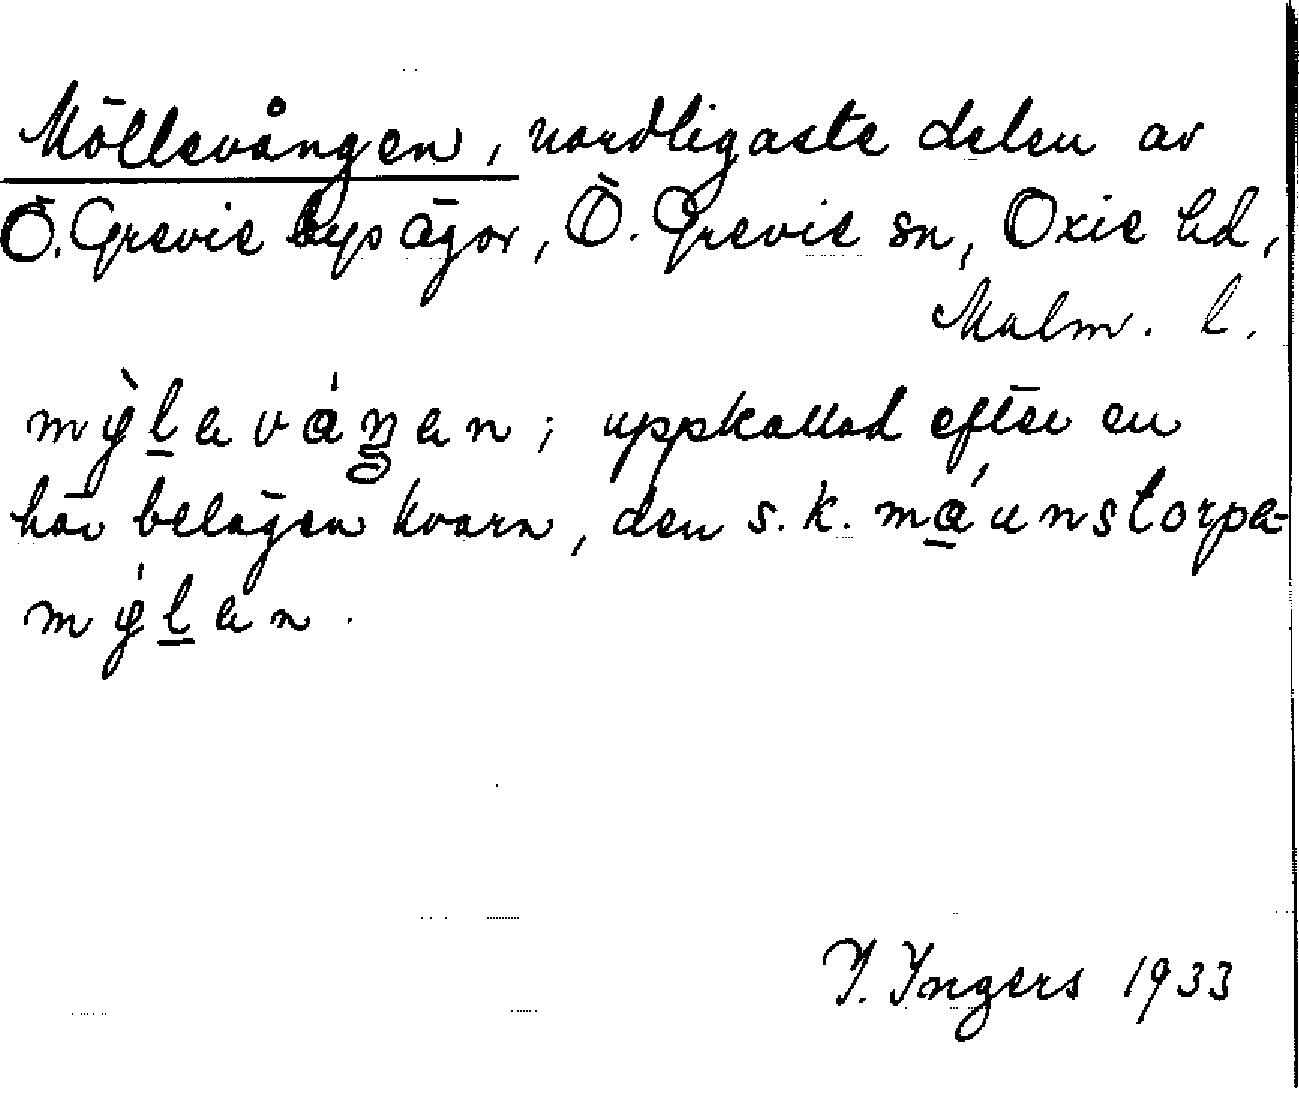 Möllevången, nordligaste delen av
Ö. Grevie bys ägor, Ö. Grevie sn, Oxie hd,
Malm. l.
mỳlaváŋan; uppkallad efter en
här belägen kvarn, den s.k. máunstorpa-
mýlan.
I. Ingers 1933